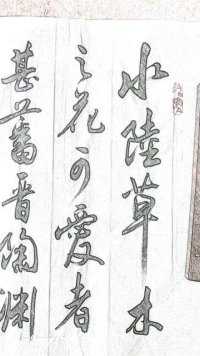 水陸草木
之花可愛者
甚蕃晋陶淵